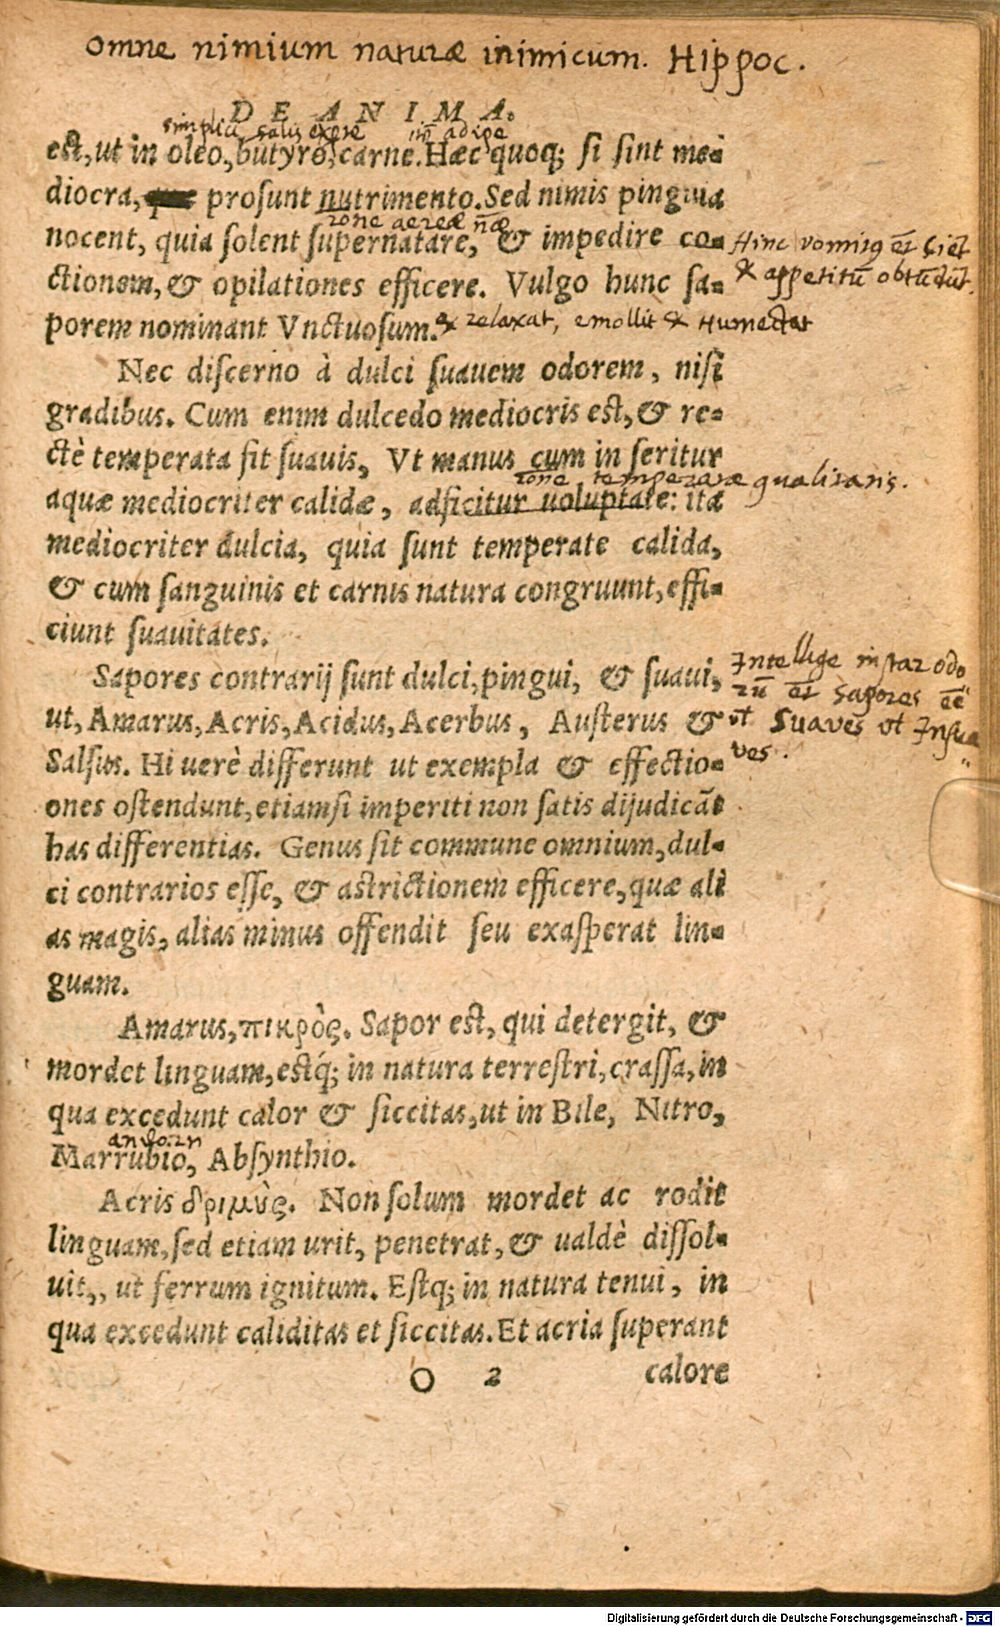 omne nimium naturæ inimicum. Hippoc.
DE ANIMA.
simplici, salis experte in adipe
est, ut in oleo, butyro, carne. Hæc quoq; si sint me-
diocra, prosunt nutrimento. Sed nimis pinguia
rone aereæ nãe
nocent, quia solent supernatare, & impedire co-
Hinc vomitq et ciet
ctionem, & opilationes efficere. Vulgo hunc sa-
& appetitũ obtũdũt.
porem nominant Vnctuosum. & relaxat, emollit & Humectat
Nec discerno à dulci suauem odorem, nisi
gradibus. Cum enim dulcedo mediocris est, & re-
ctè temperata fit suauis, Vt manus cum in seritur
rone temperatæ qualitatis.
aquæ mediocriter calidæ, adficitur uoluptate: ita
mediocriter dulcia, quia sunt temperate calida,
& cum sanguinis et carnis natura congruunt, effi-
ciunt suauitates.
Sapores contrarij sunt dulci, pingui, & suaui,
Intellige instar odo
rũ et sapores eẽ
ut, Amarus, Acris, Acidus, Acerbus, Austerus &
vt Suaves vt Insua
Salsus. Hi uerè differunt ut exempla & effectio-
ves.
ones ostendunt, etiamsi imperiti non satis dijudicãt
has differentias. Genus sit commune omnium, dul-
ci contrarios esse, & astrictionem efficere, quæ ali
as magis, alias minus offendit seu exasperat lin-
guam.
Amarus, πικρὸς. Sapor est, qui detergit, &
mordet linguam, estq́; in natura terrestri, crassa, in
qua excedunt calor & siccitas, ut in Bile, Nitro,
andorn
Marrubio, Absynthio.
Acris δριμὺς. Non solum mordet ac rodit
linguam, sed etiam urit, penetrat, & ualdè dissol-
uit,, ut ferrum ignitum. Estq; in natura tenui, in
qua excedunt caliditas et siccitas. Et acria superant
O 2 calore
Digitalisierung gefördert durch die Deutsche Forschungsgemeinschaft - DFG